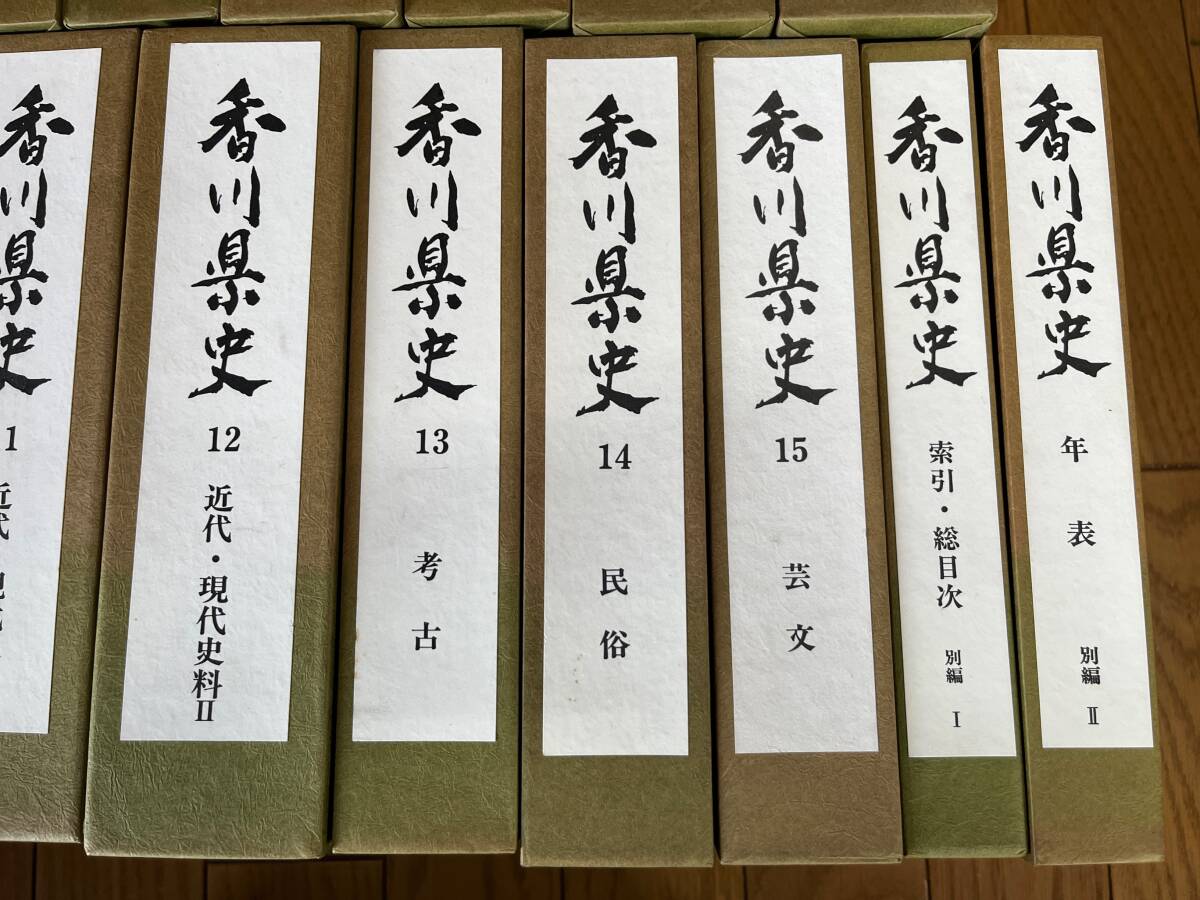 香川県史
12
近代・現代史料II
香川県史
13
考古
香川県史
14
民俗
香川県史
15
芸文
香川県史
索引・総目次
別編 I
香川県史
年表
別編 II
川県史
1
近代